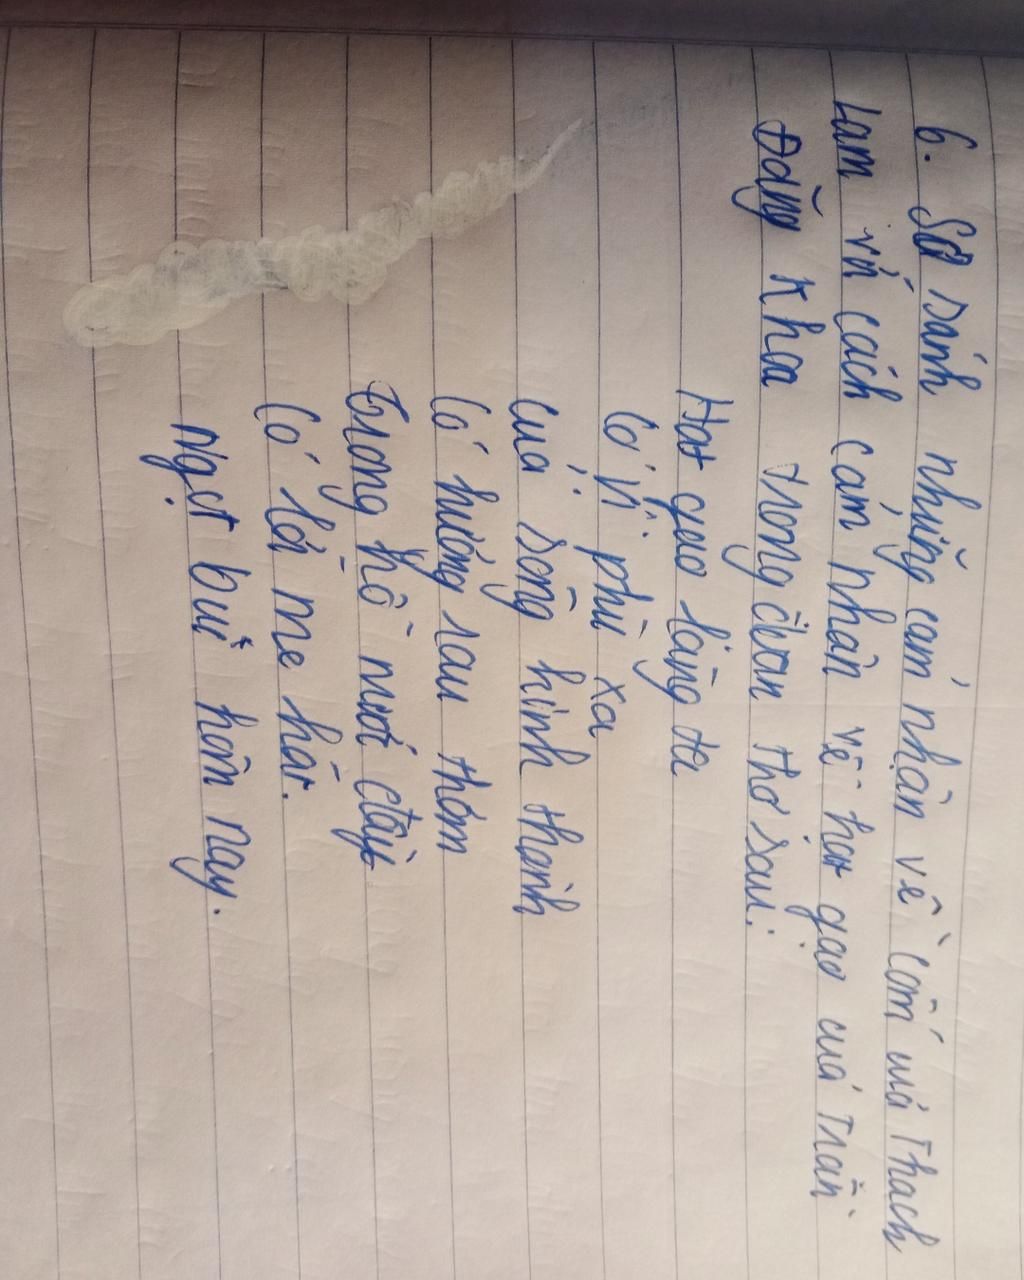 6. So sánh những cảm nhận về cốm của Thạch
Lam với cách cảm nhận về hạt gạo của Trần
Đăng Khoa trong đoạn thơ sau:
Hạt gạo làng ta
Có vị phù xa
Của sông hình thành
Có hương rau thơm
Trong hồ nước đầy
Có lời mẹ hát.
Ngọt bùi hôm nay.